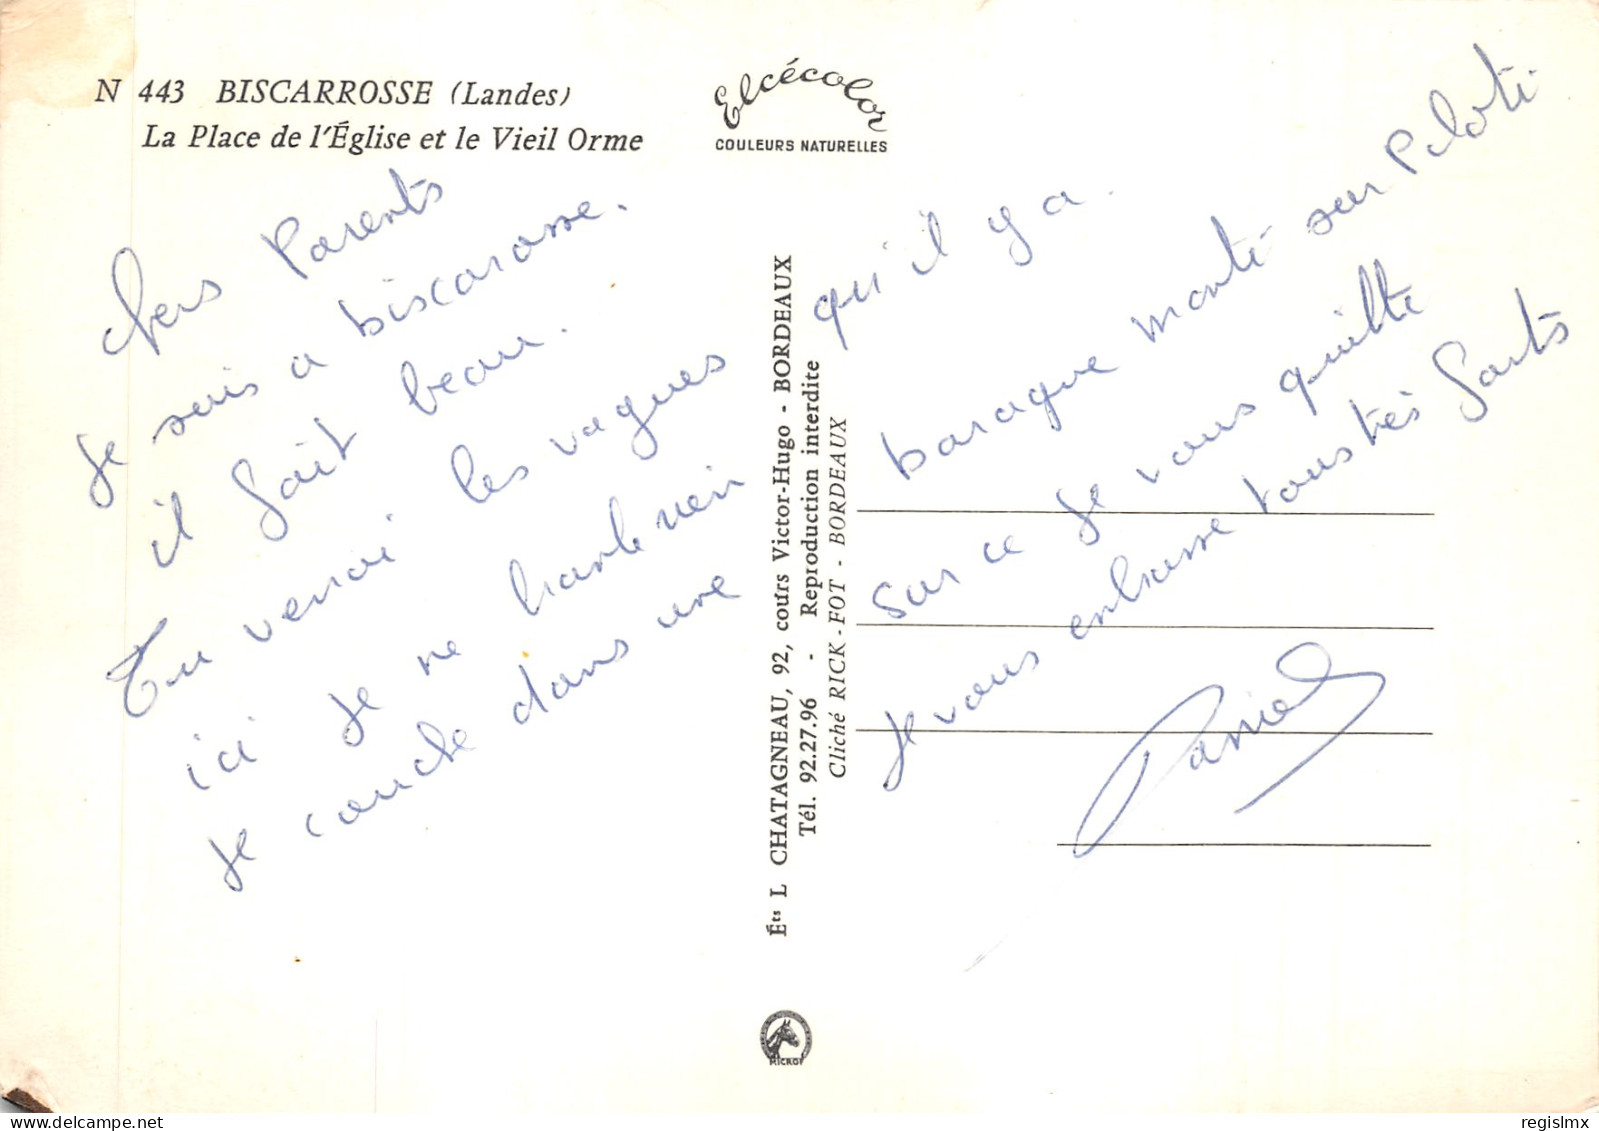 N 443 BISCARROSSE (Landes)
La Place de l'Église et le Vieil Orme
Elcécolor
COULEURS NATURELLES
chers Parents
Je suis a biscarosse.
il fait beau.
Tu verrai les vagues qu'il y a.
ici je ne
Je couche dans une
baraque monté sur Piloti
sur ce Je vous quitte
Je vous enbrasse tous très forts
Daniel
Éts L CHATAGNEAU, 92, cours Victor-Hugo - BORDEAUX
Tél. 92.27.96 - Reproduction interdite
Cliché RICK-FOT - BORDEAUX
regislmx